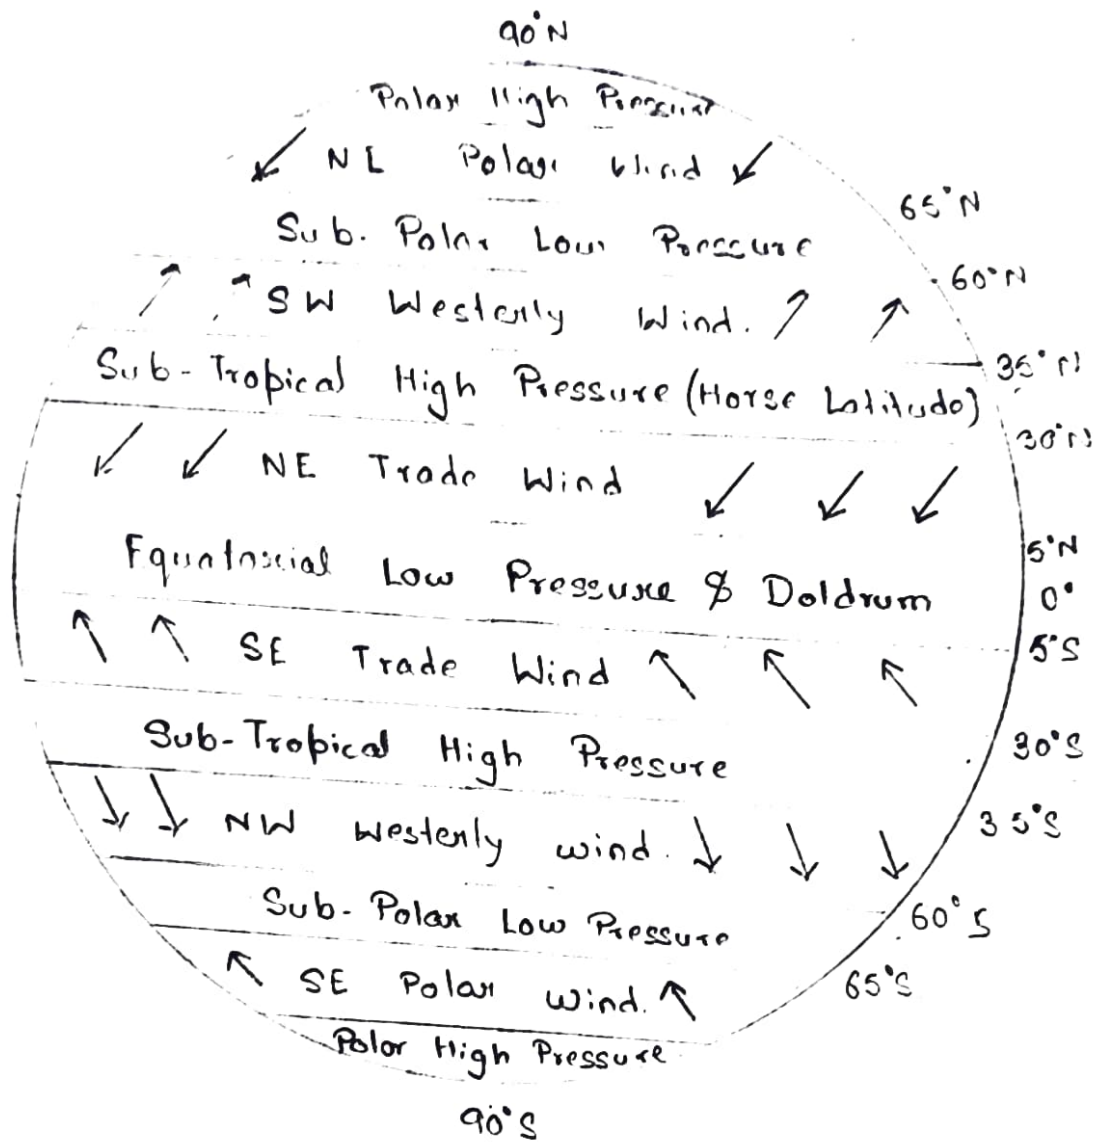 90°N
Polar High Pressure
NE Polar Wind
65°N
Sub-Polar Low Pressure
60°N
SW Westerly Wind.
35°N
Sub-Tropical High Pressure (Horse Latitude)
30°N
NE Trade Wind
5°N
Equatorial Low Pressure $ Doldrum
0°
5°S
SE Trade Wind
Sub-Tropical High Pressure
30°S
35°S
NW Westerly wind.
Sub-Polar Low Pressure
60°S
65°S
SE Polar Wind.
Polar High Pressure
90°S